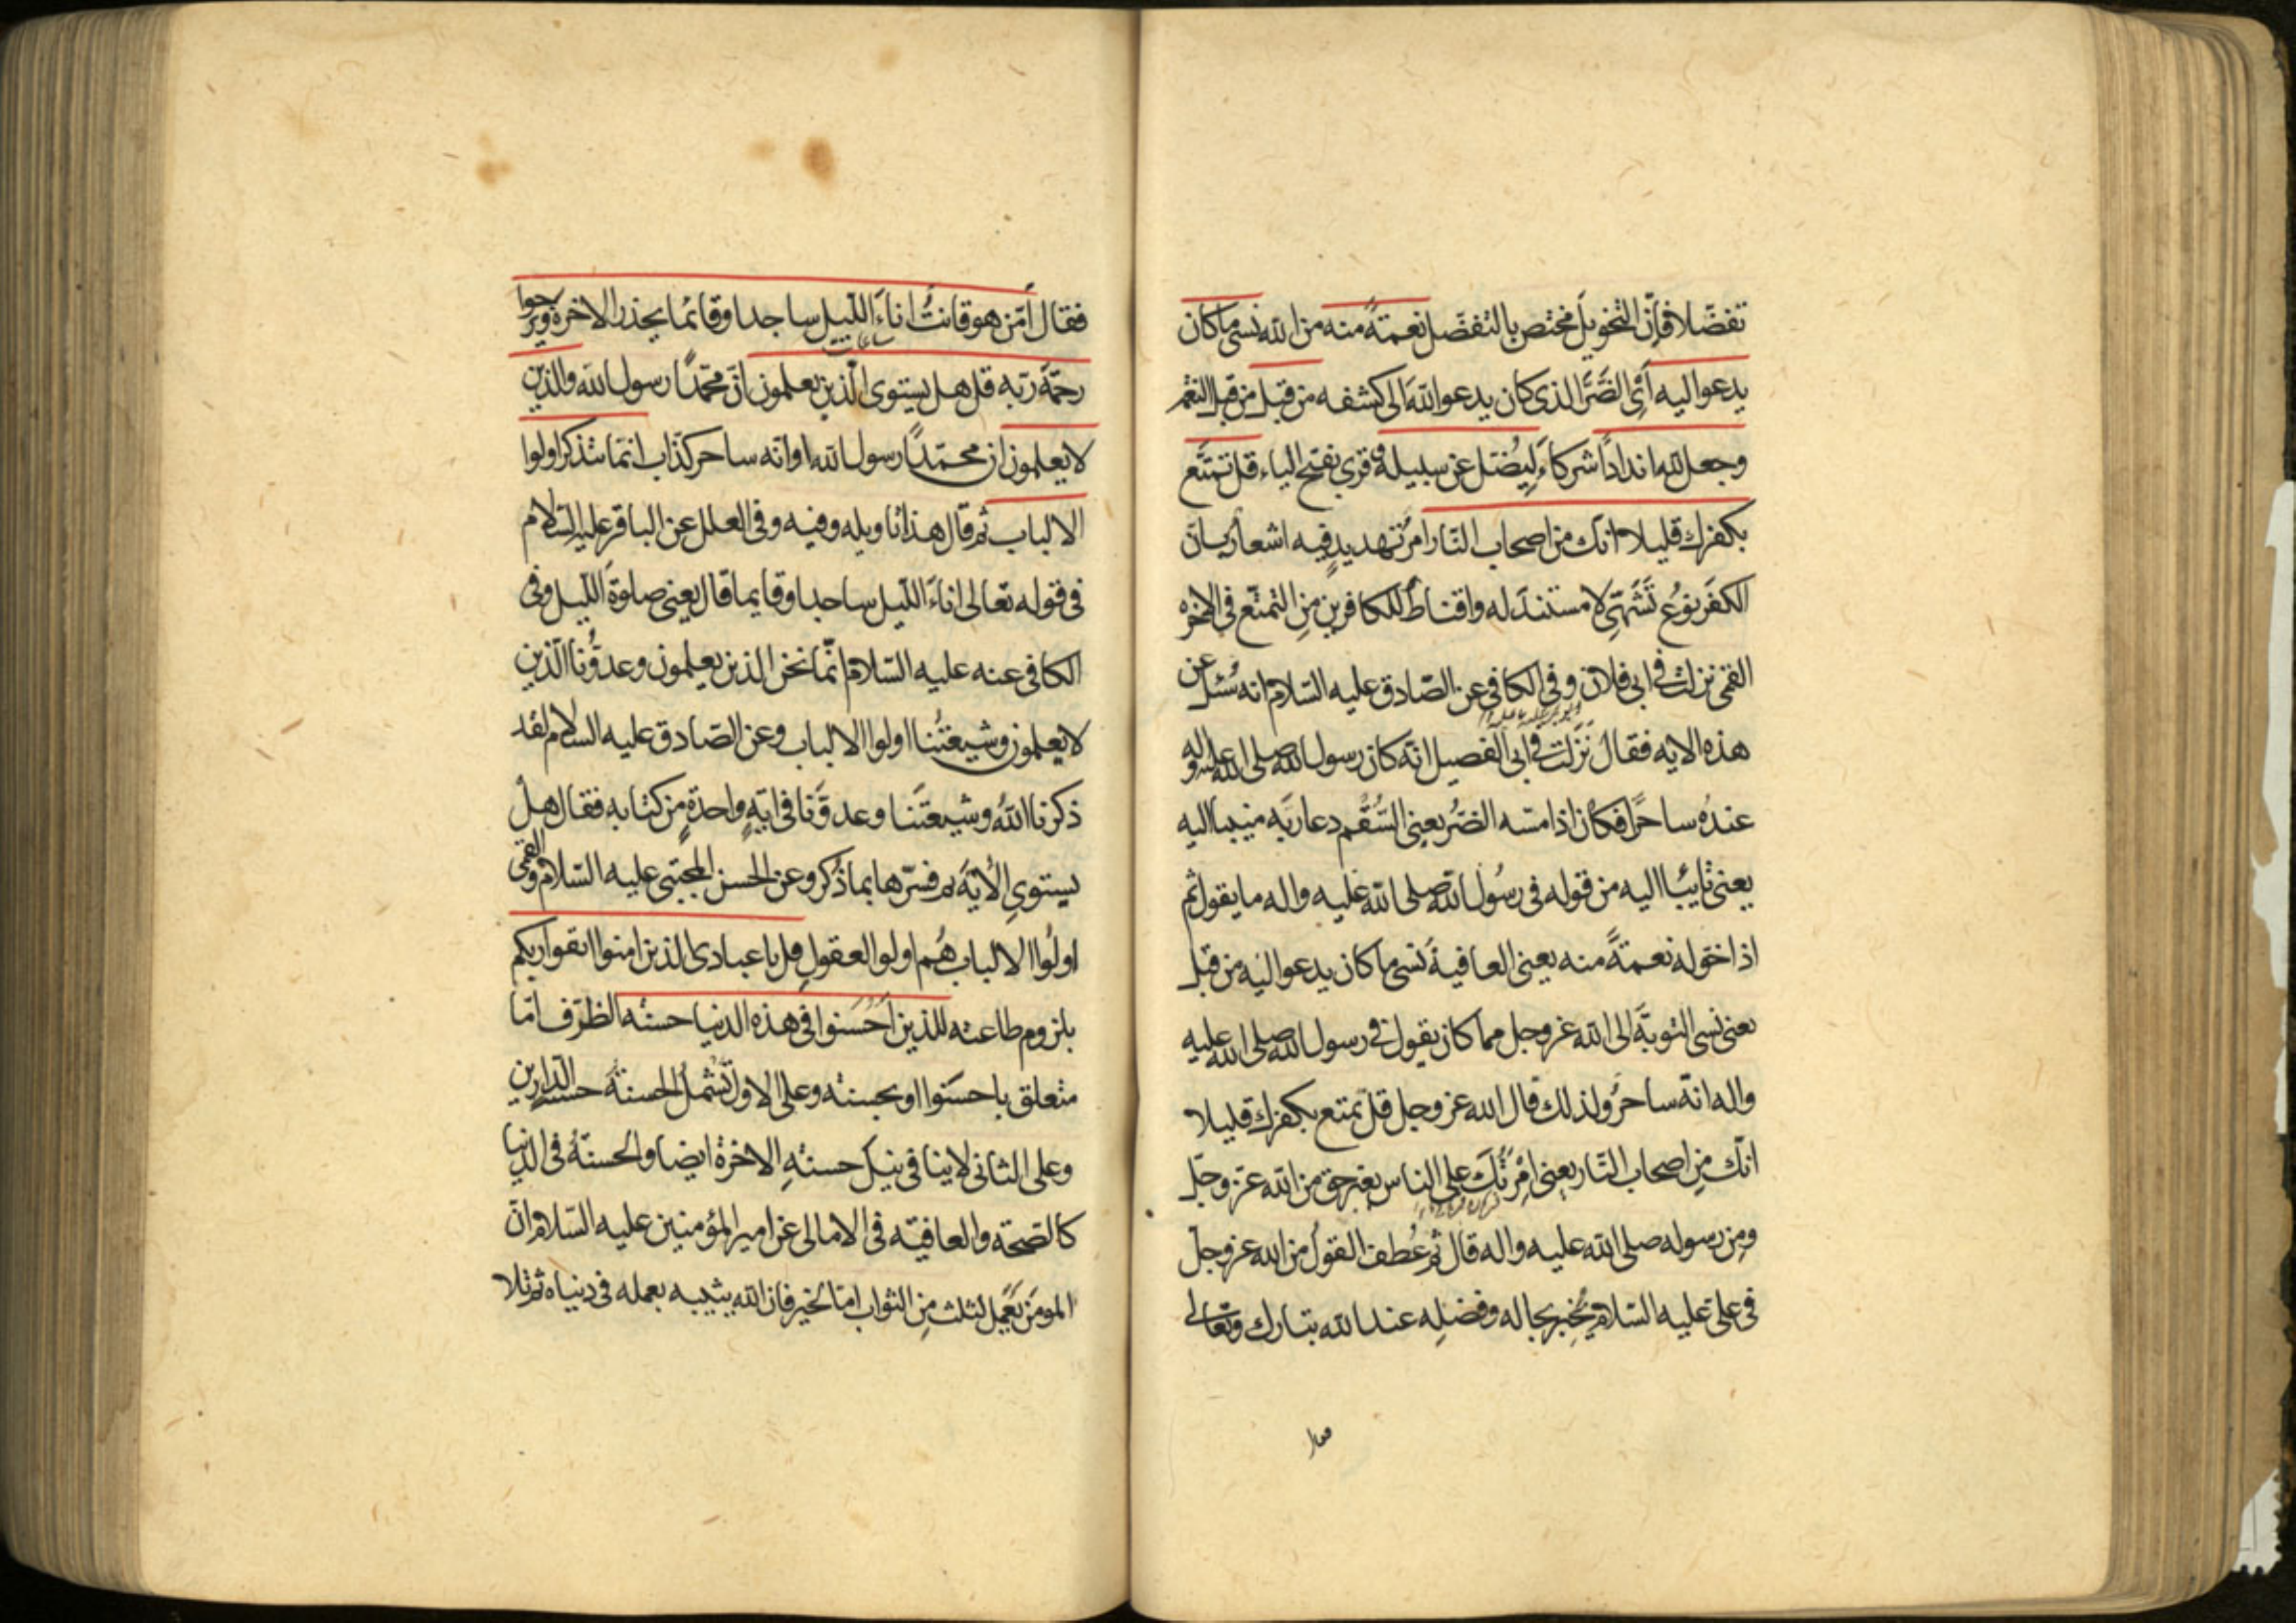 تفضّلا فإنّ التخويل مختص بالتفضّل نعمةً منه من الله نسى ما كان
يدعوا اليه اَىِ الضَرَّ الذى كان يدعوا اللهَ الى كشفه من قبل من قبل النعم
وجعل لله انداداً شركاءَ لِيُضل عن سبيله و قرئ بفتح الياء قل تمتَّع
بكفرك قليلا انّك من اصحاب النّار امرُ تهديدٍ فيه اشعار بانّ
الكفر نوعُ تَشَهّىٍ لا مستندَ له واقناطٌ للكافرين مِن التمتّع فى الاخرة
القمى نزلت فى ابى فلان و فى الكافى عن الصّادق عليه السّلام انه سُئل عن
هذه الاية فقال نَزَلَت فى ابى الفصيل انّه كان رسول الله صلى الله عليه واله
عندهُ ساحرًا فكان اذا مسّه الضرُ يعنى السُّقم دعا ربّه منيبا اليه
يعنى تايبًا اليه من قوله فى رسُول الله صلى الله عليه واله ما يقول ثم
اذا خوّله نعمةً منه يعنى العافيةَ نسى ما كان يدعوا اليه من قبل
يعنى نسى التوبةَ الى الله عز وجل مما كان يقول فى رسول الله صلى الله عليه
واله انّه ساحرٌ ولذلك قال الله عز وجل قل تمتع بكفرك قليلا
انّك مِن اصحاب النّار يعنى اِمْرتَكَ على الناس بغير حق من الله عزّ وجلّ
ومِن رسوله صلى الله عليه واله قال ثم عُطِف القولُ من الله عز وجلّ
فى علىّ عليه السّلام يُخبِر بحاله وفضلِه عند الله تبارك وتعالى
فقال اَمّن هو قانتٌ اناءَ اللّيل ساجدا وقائمًا يحذر الاخرة ويرجوا
ساعات
رحمَةَ ربّه قل هل يستوى الّذين يعلمون انّ محمّدًا رسول الله والّذين
لا يعلمون ان محمّدًا رسول الله او انّه ساحر كذّاب انّما يتذكر اولوا
الالباب ثم قال هذا تاويله وفيه وفى العلل عن الباقر عليه السّلام
فى قوله تعالى اناءَ اللّيل ساجدا وقايما قال يعنى صلوةَ اللّيل وفى
الكافى عنه عليه السّلام انّما نحن الذين يعلمون وعدوُّنا الّذين
لا يعلمون وشيعتُنا اولوا الالباب وعن الصّادق عليه السلام لقد
ذكرنا اللهُ وشيعتَنا وعدوَّنا فى ايةٍ واحدةٍ مِن كتابه فقال هل
يستوىِ الأية ثم فسّرها بما ذُكر وعن الحسن المجتبى عليه السّلام والقمى
اولُوا الالباب هُم اولوا العقول قل يا عبادى الذين امنوا اتقوا ربكم
بلزوم طاعته للذين اَحْسَنوا فى هذه الدنيا حسنه الظرف امّا
متعلق باحسَنوا او بحسنه وعلى الاول تَشْملُ الحسنةُ حسنةَ الدّارين
وعلى الثانى لا ينافى نيل حسنةِ الاخرة ايضا والحسنةُ فى الدّنيا
كالصّحة والعافيّه فى الامالى عن امير المؤمنين عليه السّلام انّ
المومَن يَعْمل لثلث مِن الثواب امّا لخير فان الله يثيبه بعمله فى دنياه ثم تلا